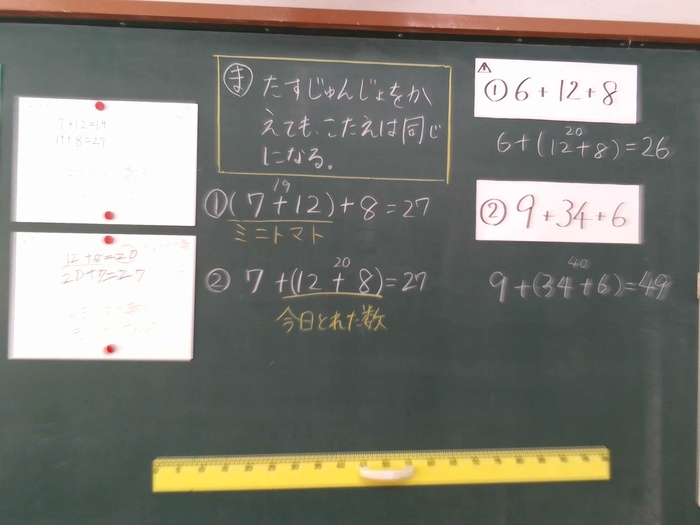 7+12=19
19+8=27
12+8=20
20+7=27
ま たすじゅんじょをか
えても、こたえは同じ
になる。
19
①(7+12)+8=27
ミニトマト
20
② 7+(12+8)=27
今日とれた数
①6+12+8
20
6+(12+8)=26
②9+34+6
40
9+(34+6)=49